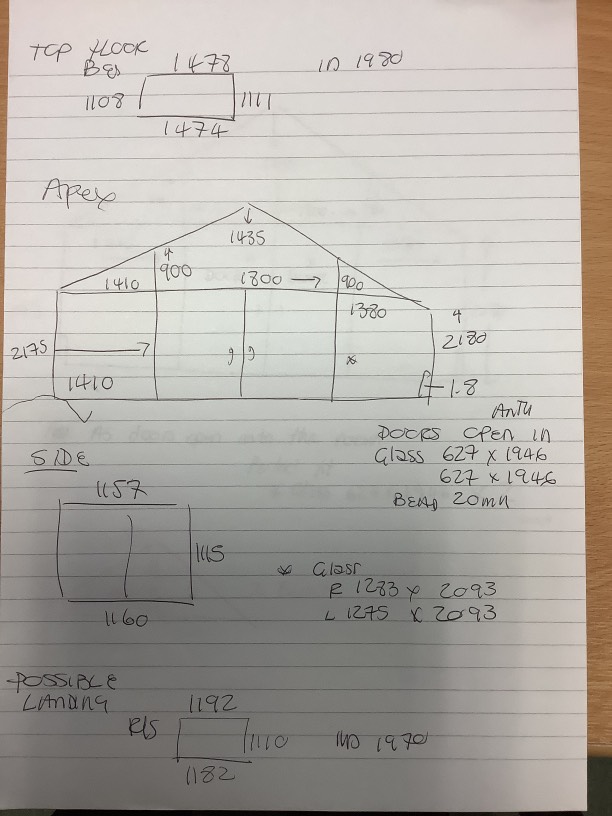 TOP FLOOR
1478
IN 1980
1108
1111
1474
Apex
1435
900
1410
1800
900
1380
2175
2180
1410
1.8
DOORS OPEN IN
Glass 627 x 1946
627 x 1946
BEAD 20mm
SIDE
1157
1115
1160
* Glass
R 1283 x 2093
L 1275 x 2093
POSSIBLE
LANDING
1192
R/S
1110
1970
1182